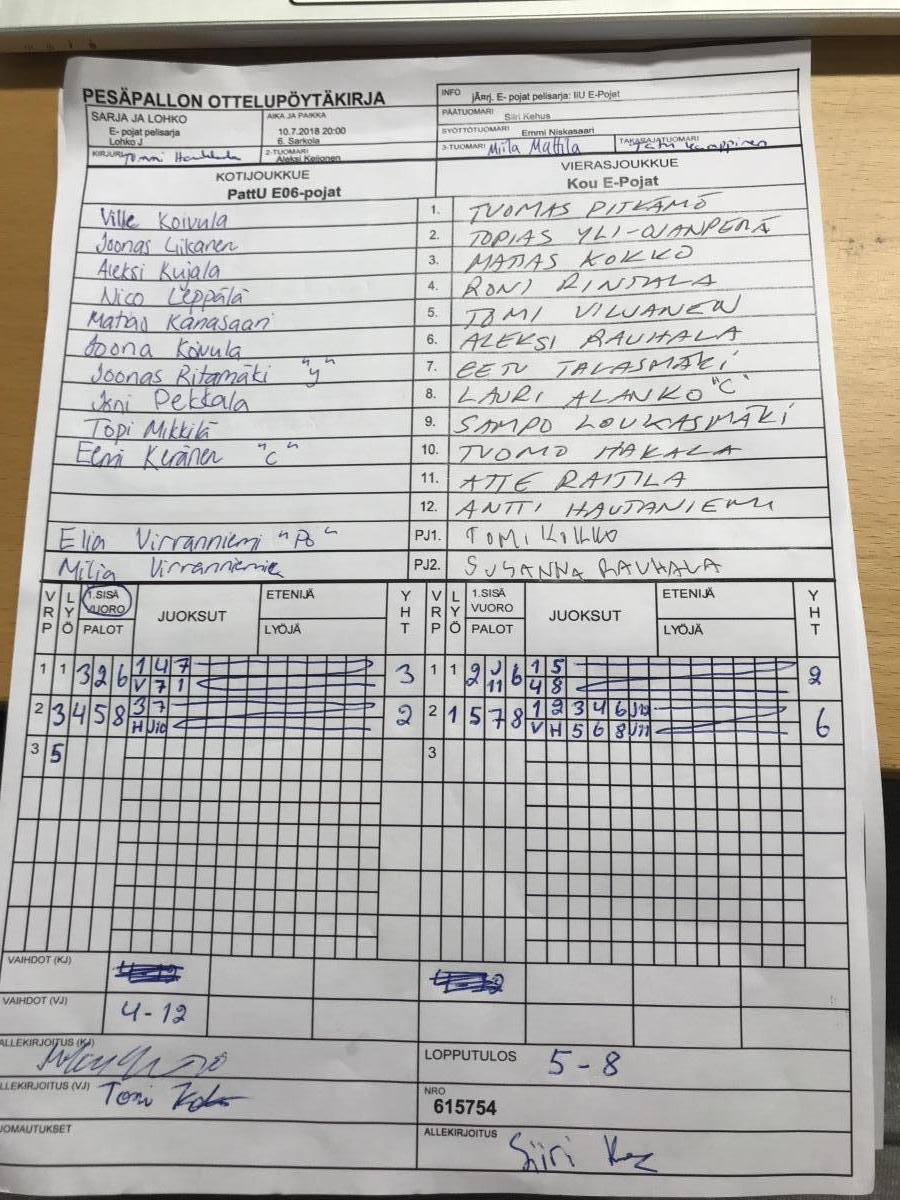 PESÄPALLON OTTELUPÖYTÄKIRJA
INFO jÄ¤rj. E- pojat pelisarja: IiU E-Pojat
PÄÄTUOMARI Siiri Kehus
SARJA JA LOHKO
E- pojat pelisarja
Lohko J
AIKA JA PAIKKA
10.7.2018 20:00
6. Sarkola
SYÖTTÖTUOMARI Emmi Niskasaari
KIRJURI
2-TUOMARI
Aleksi Keljonen
3-TUOMARI Miila Mattila
TAKARAJATUOMARI
KOTIJOUKKUE
PattU E06-pojat
VIERASJOUKKUE
Kou E-Pojat
Ville Koivula 1. TUOMAS PITKÄMÖ
Joonas Liikanen 2. TOPIAS YLI-OJANPERÄ
Aleksi Kujala 3. MATIAS KOKKO
Nico Leppälä 4. RONI RINTALA
Matias Kanasaari 5. TOMI VILJANEN
Joona Koivula 6. ALEKSI RAUHALA
Joonas Ritamäki "y" 7. EETU TALASMÄKI
Pekkala 8. LAURI ALANKO "C"
Topi Mikkilä 9. SAMPO LOUKASMÄKI
Eemi Keränen "C" 10. TUOMO HAKALA
11. ATTE RAITILA
12. ANTTI HAUTANIEMI
Elia Virranniemi "Po" PJ1. TOMI KOKKO
Milja Virranniemi PJ2. SUSANNA RAUHALA
VRP LYÖ 1.SISÄ VUORO PALOT JUOKSUT ETENIJÄ LYÖJÄ YHT VRP LYÖ 1.SISÄ VUORO PALOT JUOKSUT ETENIJÄ LYÖJÄ YHT
1 1 3 2 6 1 4 7 3 1 1 2 J11 6 1 5 2
V 7 1 4 8
2 3 4 5 8 3 7 2 2 1 5 7 8 1 2 3 4 6 J12 6
H J10 V H 5 6 8 J11
3 5 3
VAIHDOT (KJ)
VAIHDOT (VJ) 4-12
ALLEKIRJOITUS (KJ)
LOPPUTULOS 5-8
ALLEKIRJOITUS (VJ) Tomi
NRO
615754
HUOMAUTUKSET
ALLEKIRJOITUS Siiri